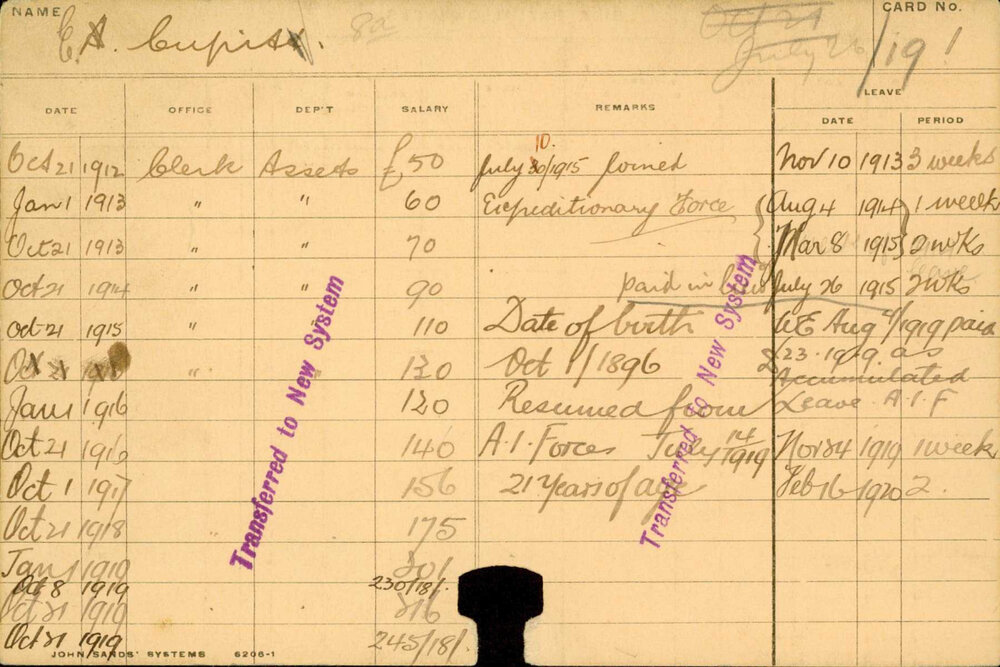 NAME CARD No.
E. A. Cupitt. 8a Oct 21 /19 1
July 26
LEAVE
DATE OFFICE DEP'T SALARY REMARKS DATE PERIOD
Oct 21 1912 Clerk Assets £50 July 10/1915 Joined Nov 10 1913 3 weeks
Jan 1 1913 " " 60 Expeditionary Force Aug 4 1914 1 week
Oct 21 1913 " " 70 Mar 8 1915 2 wks
Oct 21 1914 " " 90 paid in lieu July 26 1915 2 wks
Oct 21 1915 " " 110 Date of birth WE Aug 9/1919 paid
" 130 Oct 1/1896 £23.19.9. as
Accumulated
Jan 1 1916 120 Resumed from Leave A.I.F
Oct 21 1916 140 A.I. Forces July 14/1919 Nov 24 1919 1 week
Oct 1 1917 156 21 Years of age Feb 16 1920 2.
Oct 21 1918 175
Jan 1 1919 201
Oct 8 1919 230/18/.
Oct 21 1919 216
Oct 21 1919 245/18/.
Transferred to New System
Transferred to New System
JOHN SANDS' SYSTEMS 6206-1